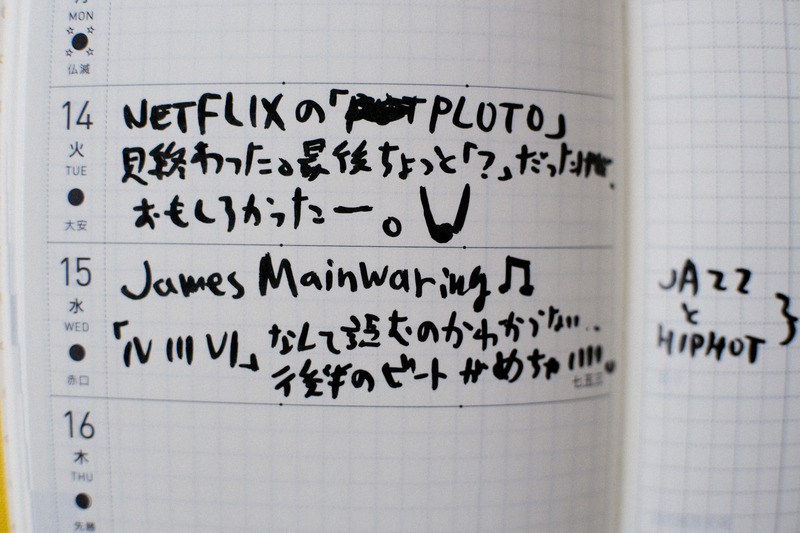 MON
仏滅
14
火
TUE
大安
NETFLIXの「PLUTO」
見終わった。最後ちょっと「?」だったけど、
おもしろかったー。
15
水
WED
赤口
James Mainwaring♫
「IV III VI」なんて読むのかわからない…
後半のビートがめちゃ
七五三
JAZZ
と
HIPHOT
16
木
THU
先勝